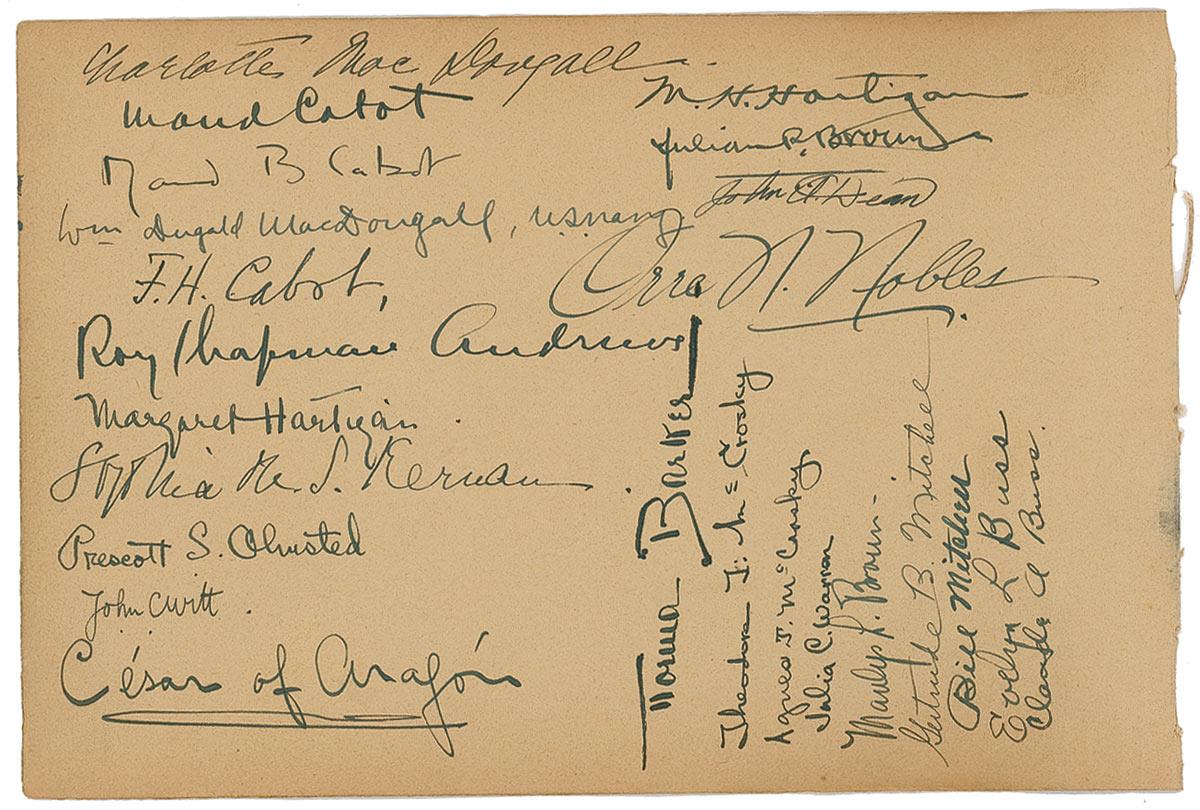 Charlotte MacDougall.
Maud Cabot
Maud B Cabot
Wm Dugald MacDougall, U.S. Navy
F. H. Cabot,
Roy Chapman Andrews
Margaret Hartigan.
M. S. Kernan.
Prescott S. Olmsted
John C Witt.
César of Aragón
M. H. Hartigan
Julian P. Brown
John Dean
Orre N. Nobles
Norma Barker
Theodore T. McCrosky
Agnes T. McCrosky
Julia C. Warren
L. Brown
Gertrude B. Mitchell
Bill Mitchell
Evelyn L Buss
Claude A Buss.